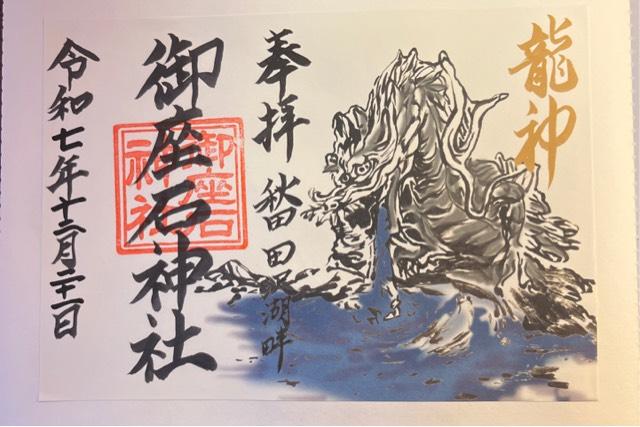 龍神
奉拝 秋田田沢湖畔
御座石神社
御座石
神社
令和七年十二月二十一日